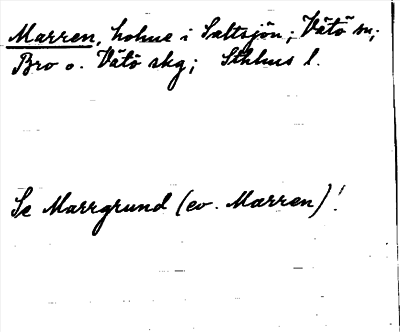 Marren, holme i Saltsjön; Vätö sn;
Bro o. Vätö skg; Sthlms l.
Se Marrgrund (ev. Marren)!